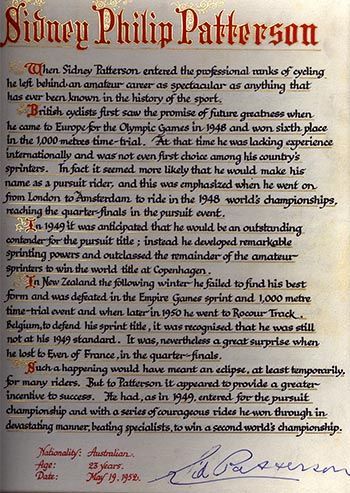 Sidney Philip Patterson
When Sidney Patterson entered the professional ranks of cycling
he left behind an amateur career as spectacular as anything that
has ever been known in the history of the sport.
British cyclists first saw the promise of future greatness when
he came to Europe for the Olympic Games in 1948 and won sixth place
in the 1,000 metres time-trial. At that time he was lacking experience
internationally and was not even first choice among his country's
sprinters. In fact it seemed more likely that he would make his
name as a pursuit rider, and this was emphasized when he went on
from London to Amsterdam to ride in the 1948 world's championships,
reaching the quarter-finals in the pursuit event.
In 1949 it was anticipated that he would be an outstanding
contender for the pursuit title; instead he developed remarkable
sprinting powers and outclassed the remainder of the amateur
sprinters to win the world title at Copenhagen.
In New Zealand the following winter he failed to find his best
form and was defeated in the Empire Games sprint and 1,000 metre
time-trial event and when later in 1950 he went to Rocour Track,
Belgium, to defend his sprint title, it was recognised that he was still
not at his 1949 standard. It was, nevertheless a great surprise when
he lost to Even of France, in the quarter-finals.
Such a happening would have meant an eclipse, at least temporarily,
for many riders. But to Patterson it appeared to provide a greater
incentive to success. He had, as in 1949, entered for the pursuit
championship and with a series of courageous rides he won through in
devastating manner, beating specialists, to win a second world's championship.
Nationality: Australian.
Age: 23 years.
Date: May 19, 1952.
Sid Patterson